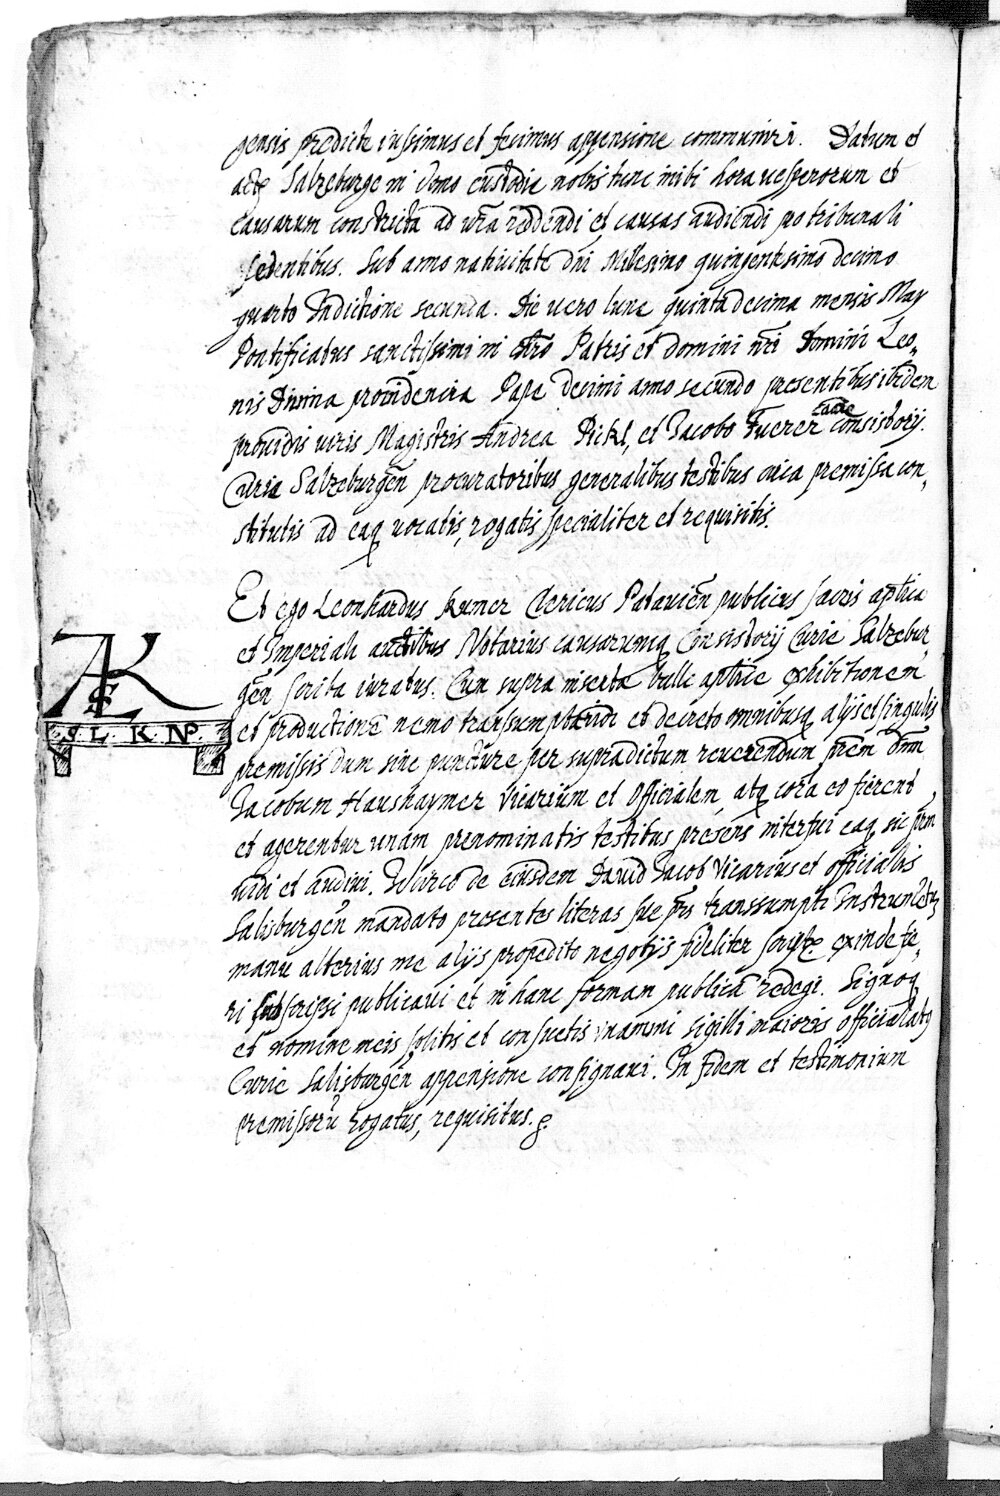 gensis predicte iussimus et fecimus appensione communiri. Datum et
acte Salzeburge in domo custodie nobis tunc inibi hora uesperorum et
causarum constricta ad iura reddendi et causas audiendi pro tribunali
sedentibus. Sub anno nativitate dni Millesimo quingentesimo decimo
quarto Indictione secunda. Die uero lune quinta decima mensis May
Pontificatus sanctissimi in Patris et domini nri Domini Leo¬
nis Diuina prouidencia Pape decimi anno secundo presentibus ibidem
prouidis uiris Magistris Andrea Pickl, et Jacobo Fuerer consistorij
Curie Salzeburgen procuratoribus generalibus testibus premissa con¬
stitutis ad eaq uocatis, rogatis specialiter et requisitis.
Et ego Leonhardus Kumer Clericus Patauien publicus sacris aplica
et Imperiali auctibus Notarius causarumq Consistorij Curie Salzebur¬
gen scriba iuratus. Cum supra inserta bulle aplice exhibitionem
et productione nemo transumptendi et decreto omnibusq alijs et singulis
premissis dum sine puncture per supradictum reuerendum prem dnm
Jacobum Haushaymer Vicarium et Officialem atq cora eo fierent
et agerentur unam prenominatis testibus presens interfui eaq sic
uidi et audiui. Iccirco de eiusdem David Jacob Vicarius et officialis
Salisburgen mandato presentes literas siue transsumpti Instrumetu
manu alterius me alijs prepedito negotijs fideliter scripte exinde fie¬
ri subscripsi publicaui et in hanc formam publica redegi. Signoq
et nomine meis solitis et consuetis sigilli maioris officialatq
Curie Salisburgen appensione consignaui. In fidem et testimonium
premissoru rogatus, requisitus.
S. L. K. NP.